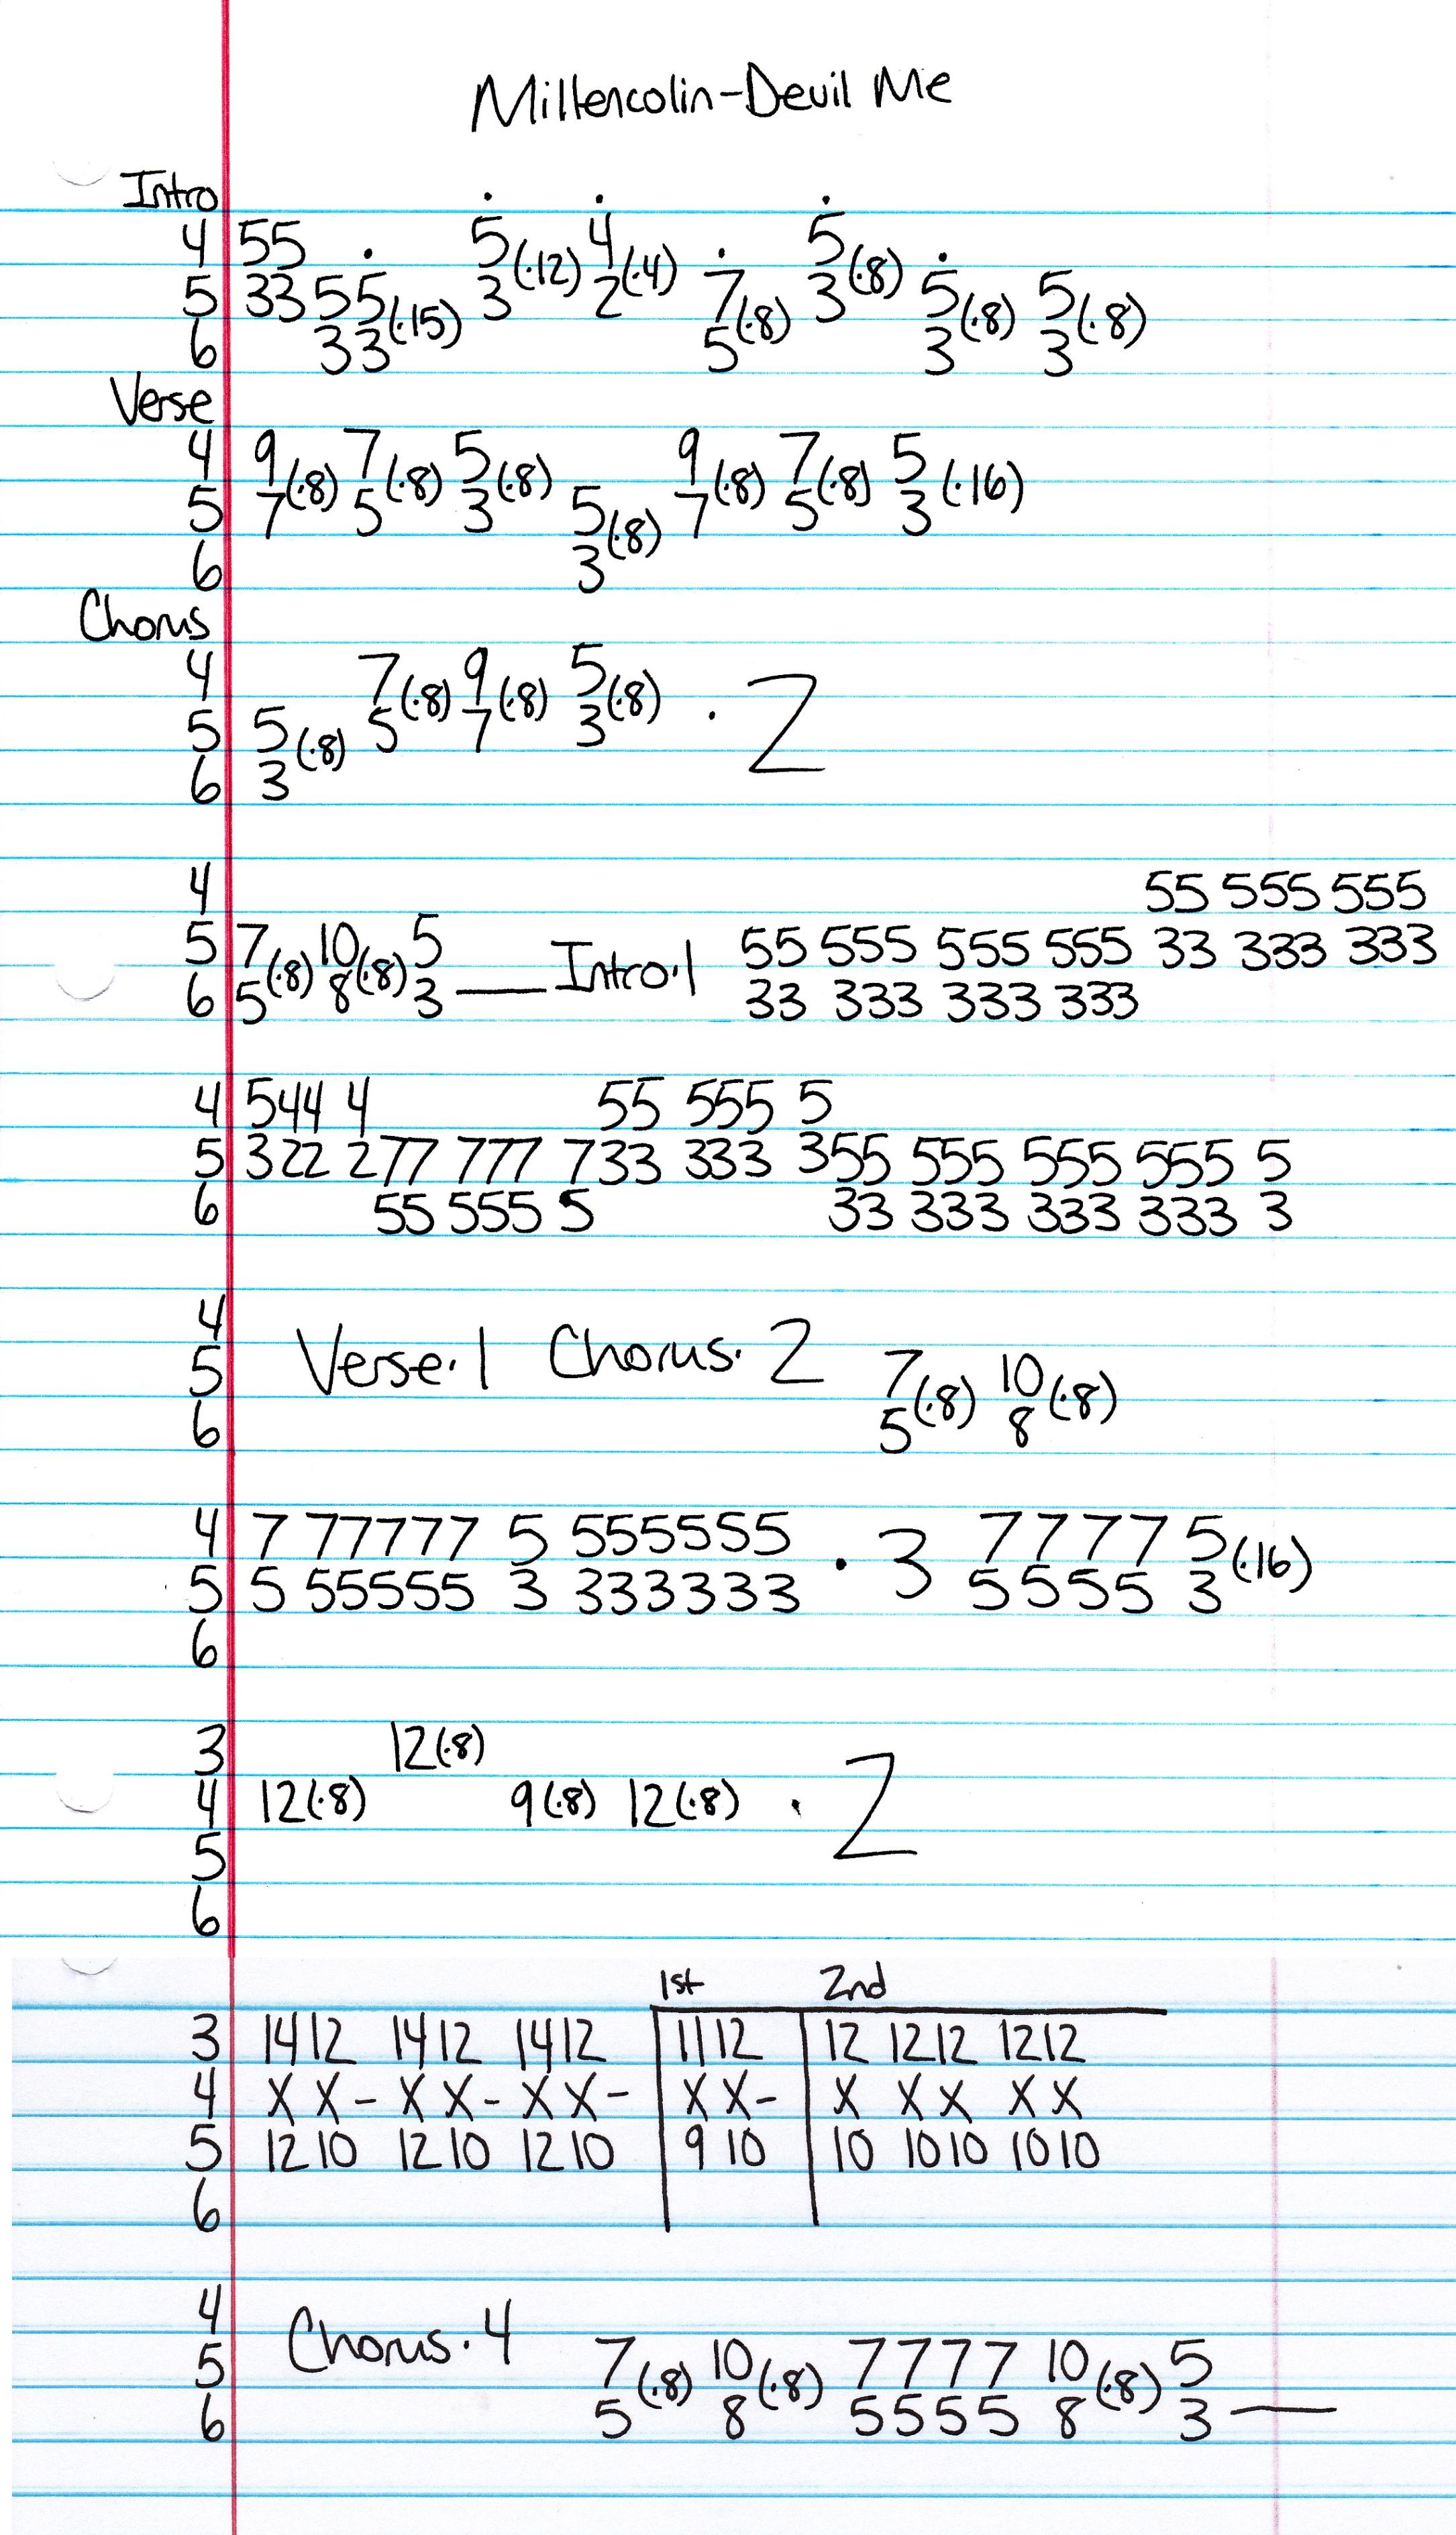 Millencolin-Devil Me
Intro
4 55 5(·12) 4(·4) 5(·8)
5 33 55(·15) 3 2 7(·8) 3 5(·8) 5(·8)
6 33 5 3 3
Verse
4 9(·8) 7(·8) 5(·8) 9(·8) 7(·8) 5(·16)
5 7 5 3 5(·8) 7 5 3
6 3
Chorus
4 7(·8) 9(·8) 5(·8) · 2
5 5(·8) 5 7 3
6 3
4 55 555 555
5 7(·8) 10(·8) 5 — Intro·1 55 555 555 555 33 333 333
6 5 8 3 33 333 333 333
4 544 4 55 555 5
5 322 277 777 733 333 355 555 555 555 5
6 55 555 5 33 333 333 333 3
4
5 Verse·1 Chorus·2 7(·8) 10(·8)
6 5 8
4 7 77777 5 555555 · 3 7777 5(·16)
5 5 55555 3 333333 5555 3
6
3 12(·8)
4 12(·8) 9(·8) 12(·8) · 2
5
6
1st 2nd
3 1412 1412 1412 1112 12 1212 1212
4 XX- XX- XX- XX- X XX XX
5 1210 1210 1210 9 10 10 1010 1010
6
4 Chorus·4
5 7(·8) 10(·8) 7777 10(·8) 5
6 5 8 5555 8 3 —